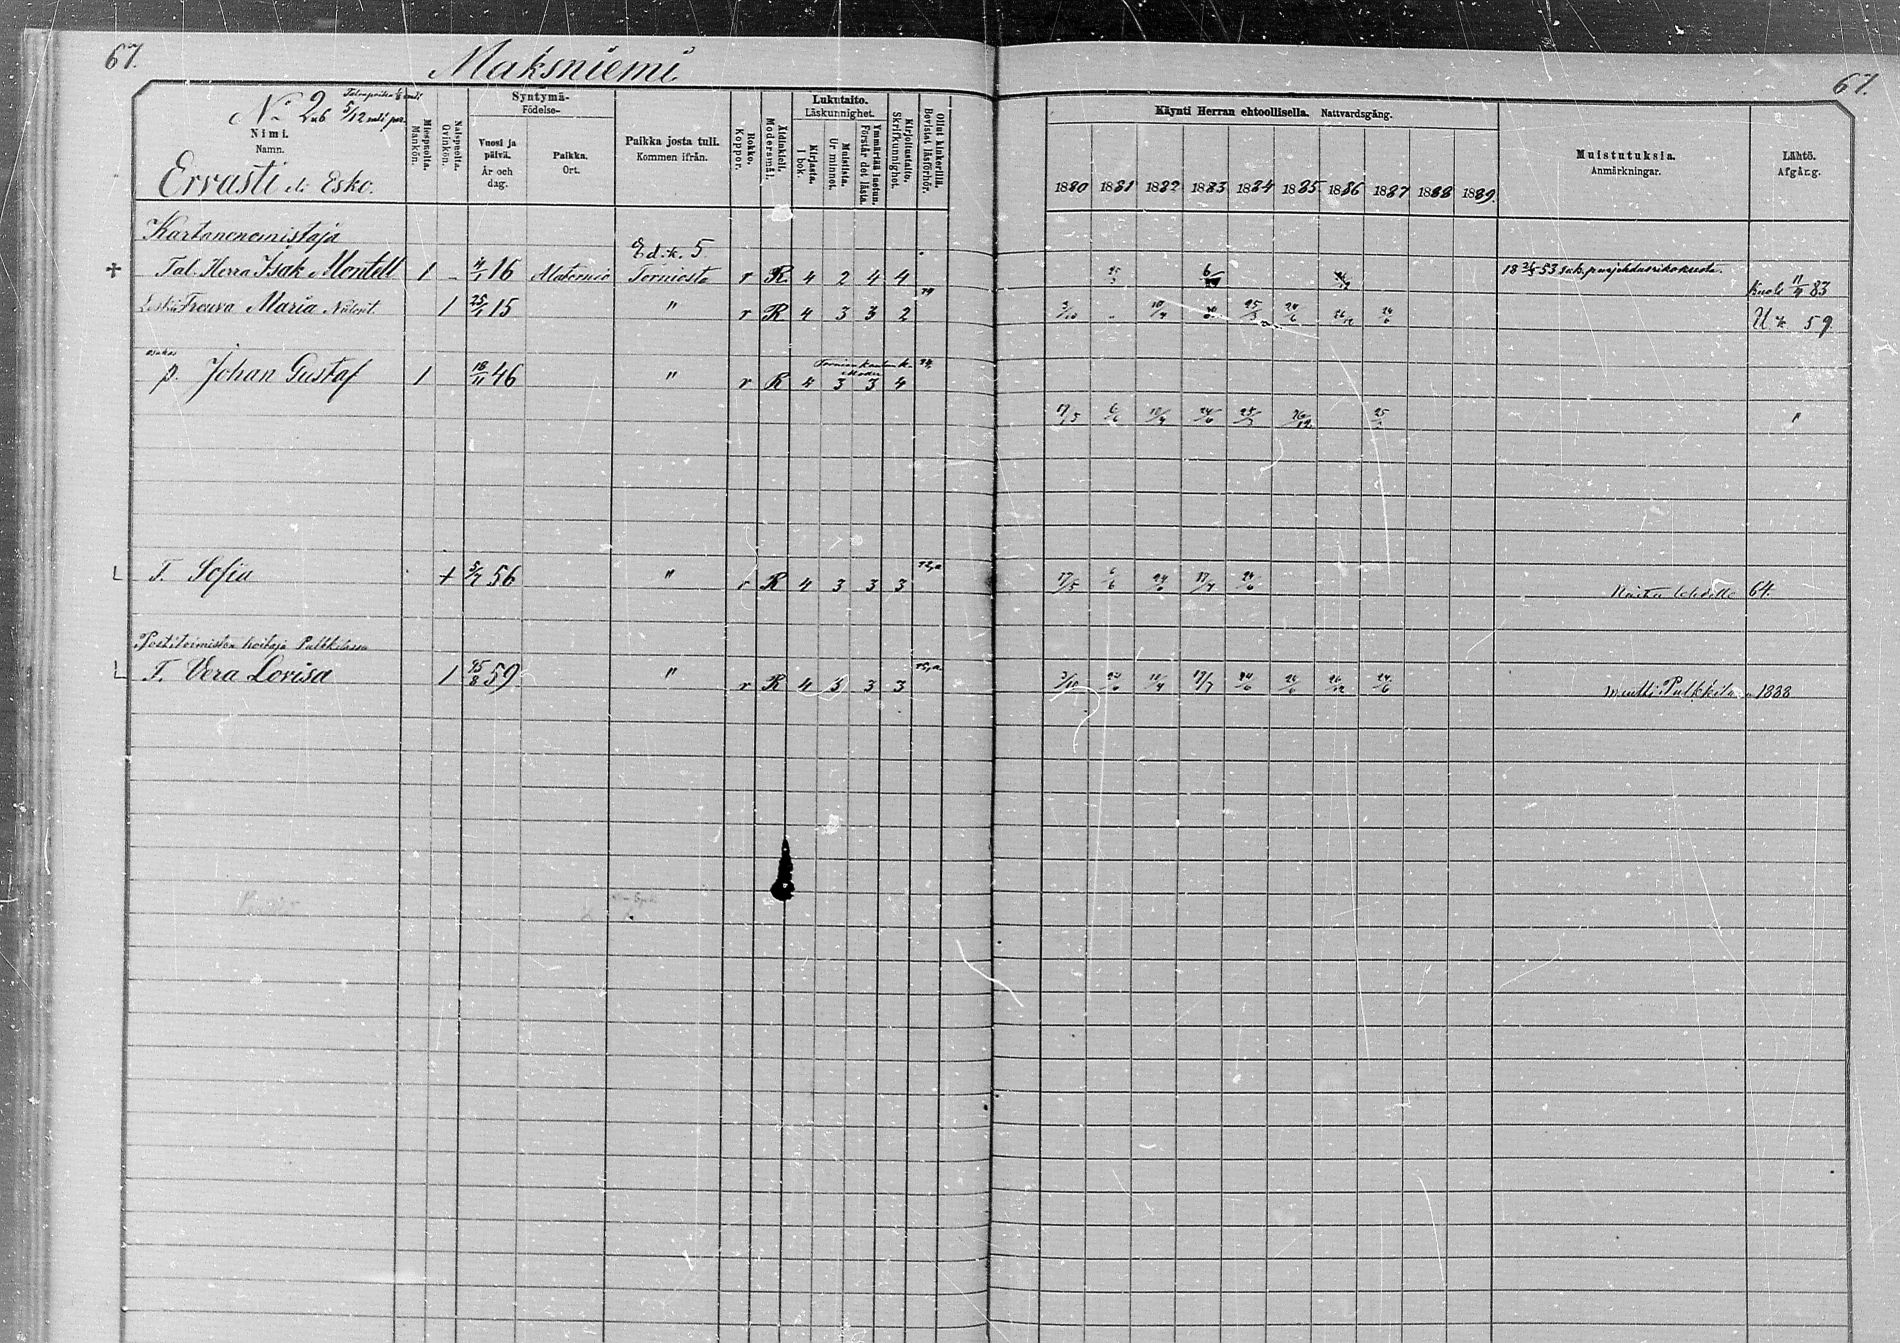 67.
Maksniemi
67.
N:o 2
5/12 mtl
Nimi.
Namn.
Ervasti eli Esko.
Miespuolta.
Mankön.
Naispuolta.
Qvinkön.
Syntymä-
Födelse-
Vuosi ja päivä.
År och dag.
Paikka.
Ort.
Paikka josta tuli.
Kommen ifrån.
Rokko.
Koppor.
Äidinkieli.
Modersmål.
Lukutaito.
Läskunnighet.
Kirjasta.
I bok.
Muistista.
Ur minnet.
Ymmärtää luetun.
Förstår det lästa.
Kirjoitustaito.
Skrifkunnighet.
Ollut kinkerillä.
Bevistat läsförhör.
Käynti Herran ehtoollisella. Nattvardsgång.
1880 1881 1882 1883 1884 1885 1886 1887 1888 1889
Muistutuksia.
Anmärkningar.
Lähtö.
Afgång.
Ed. k. 5.
Tal. Herra Isak Montell 1 – 4/1 16 Alatornio Torniosta r R 4 2 4 4 Kuoli 11/9 83
Leski Frouva Maria 1 25/1 15 " r R 4 3 3 2 3/10 10/4 25/3 24/6 26/12 24/6 U. k. 59
p. Johan Gustaf 1 18/11 46 " r R 4 3 3 4
17/5 6/6 10/4 24/6 25/3 26/12
T. Sofia + 5/7 56 " r R 4 3 3 3 17/5 6/6 24/6 17/7 24/6 64.
Postitoimiston hoitaja Pulkkilassa
T. Vera Lovisa 1 25/8 59 " r R 4 3 3 3 3/10 10/4 17/7 24/6 26/12 24/6 muutti Pulkkilaan 1888